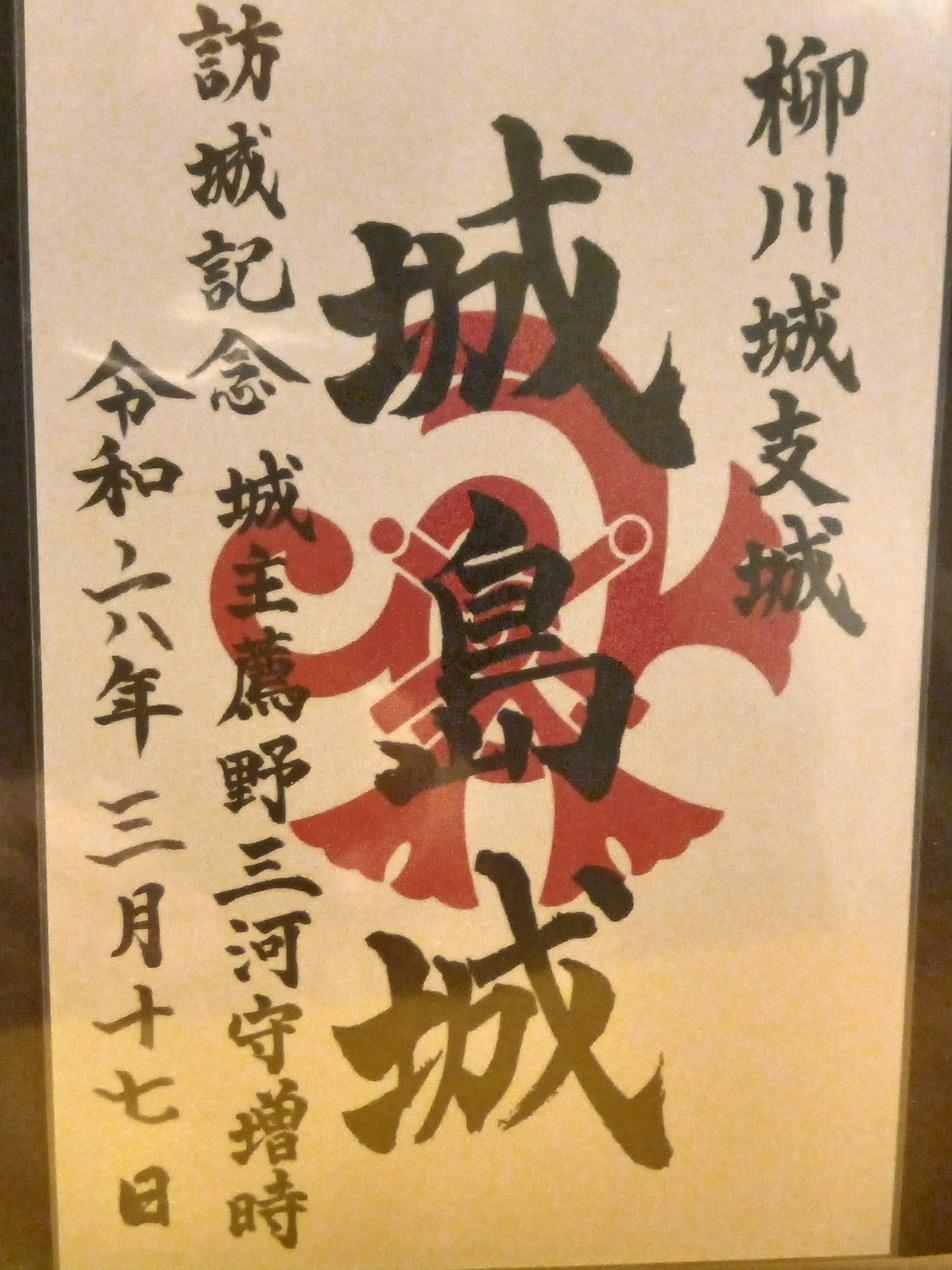 柳川城支城
城島城
訪城記念 城主薦野三河守増時
令和六年三月十七日